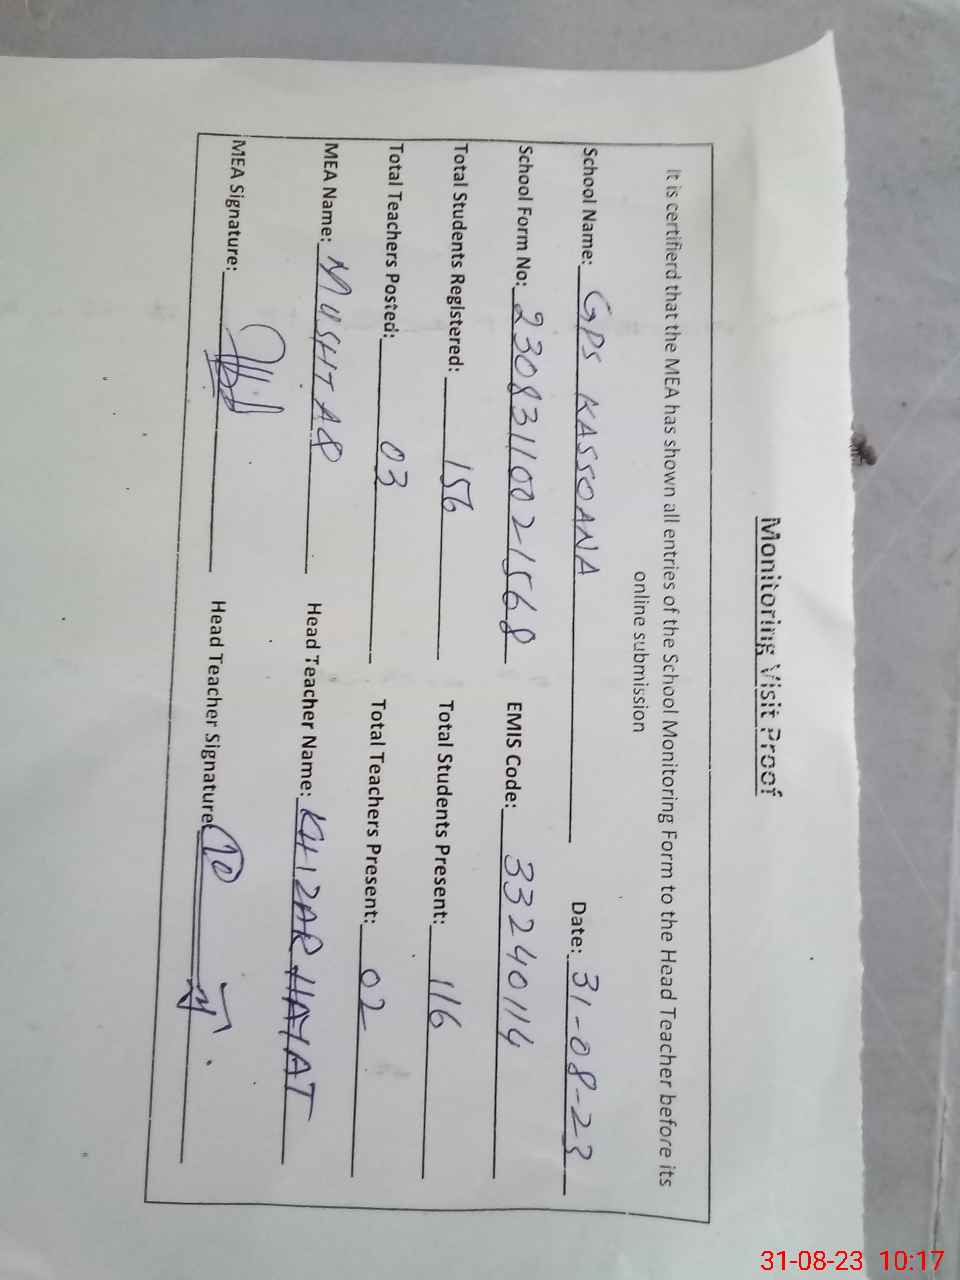 Monitoring Visit Proof
It is certifierd that the MEA has shown all entries of the School Monitoring Form to the Head Teacher before its
online submission
School Name: GPS KASSOANA Date: 31-08-23
School Form No: 23083110021568 EMIS Code: 33240114
Total Students Registered: 156 Total Students Present: 116
Total Teachers Posted: 03 Total Teachers Present: 02
MEA Name: MUSHTAQ Head Teacher Name: KHIZAR HAYAT
MEA Signature: Head Teacher Signature
31-08-23 10:17